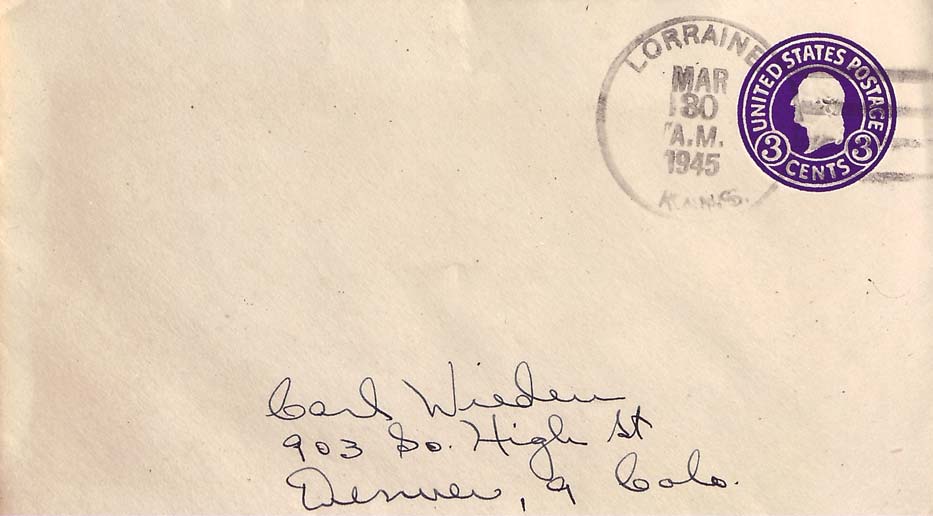 LORRAINE
MAR
30
A.M.
1945
KANS.
UNITED STATES POSTAGE
3 CENTS 3
Carl Wieden
903 So. High St
Denver, 9 Colo.